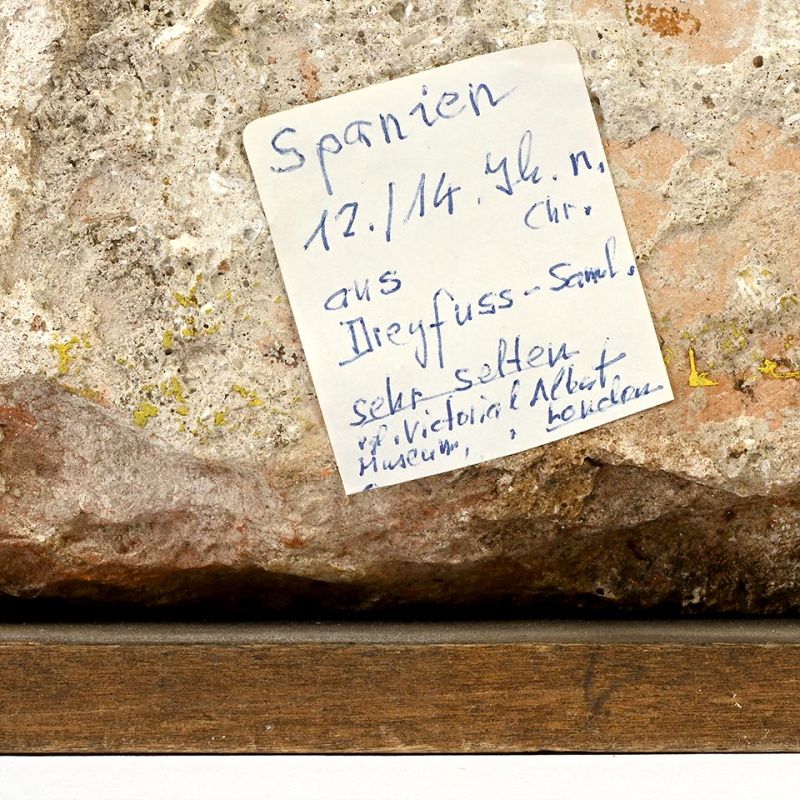 Spanien
12./14. Jh. n.
Chr.
aus
Dreyfuss-Saml.
sehr selten
vgl. Victoria Albert
Museum, London